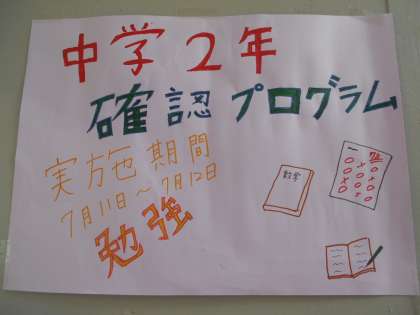 中学2年
確認プログラム
実施期間
7月11日～7月12日
勉強
数学